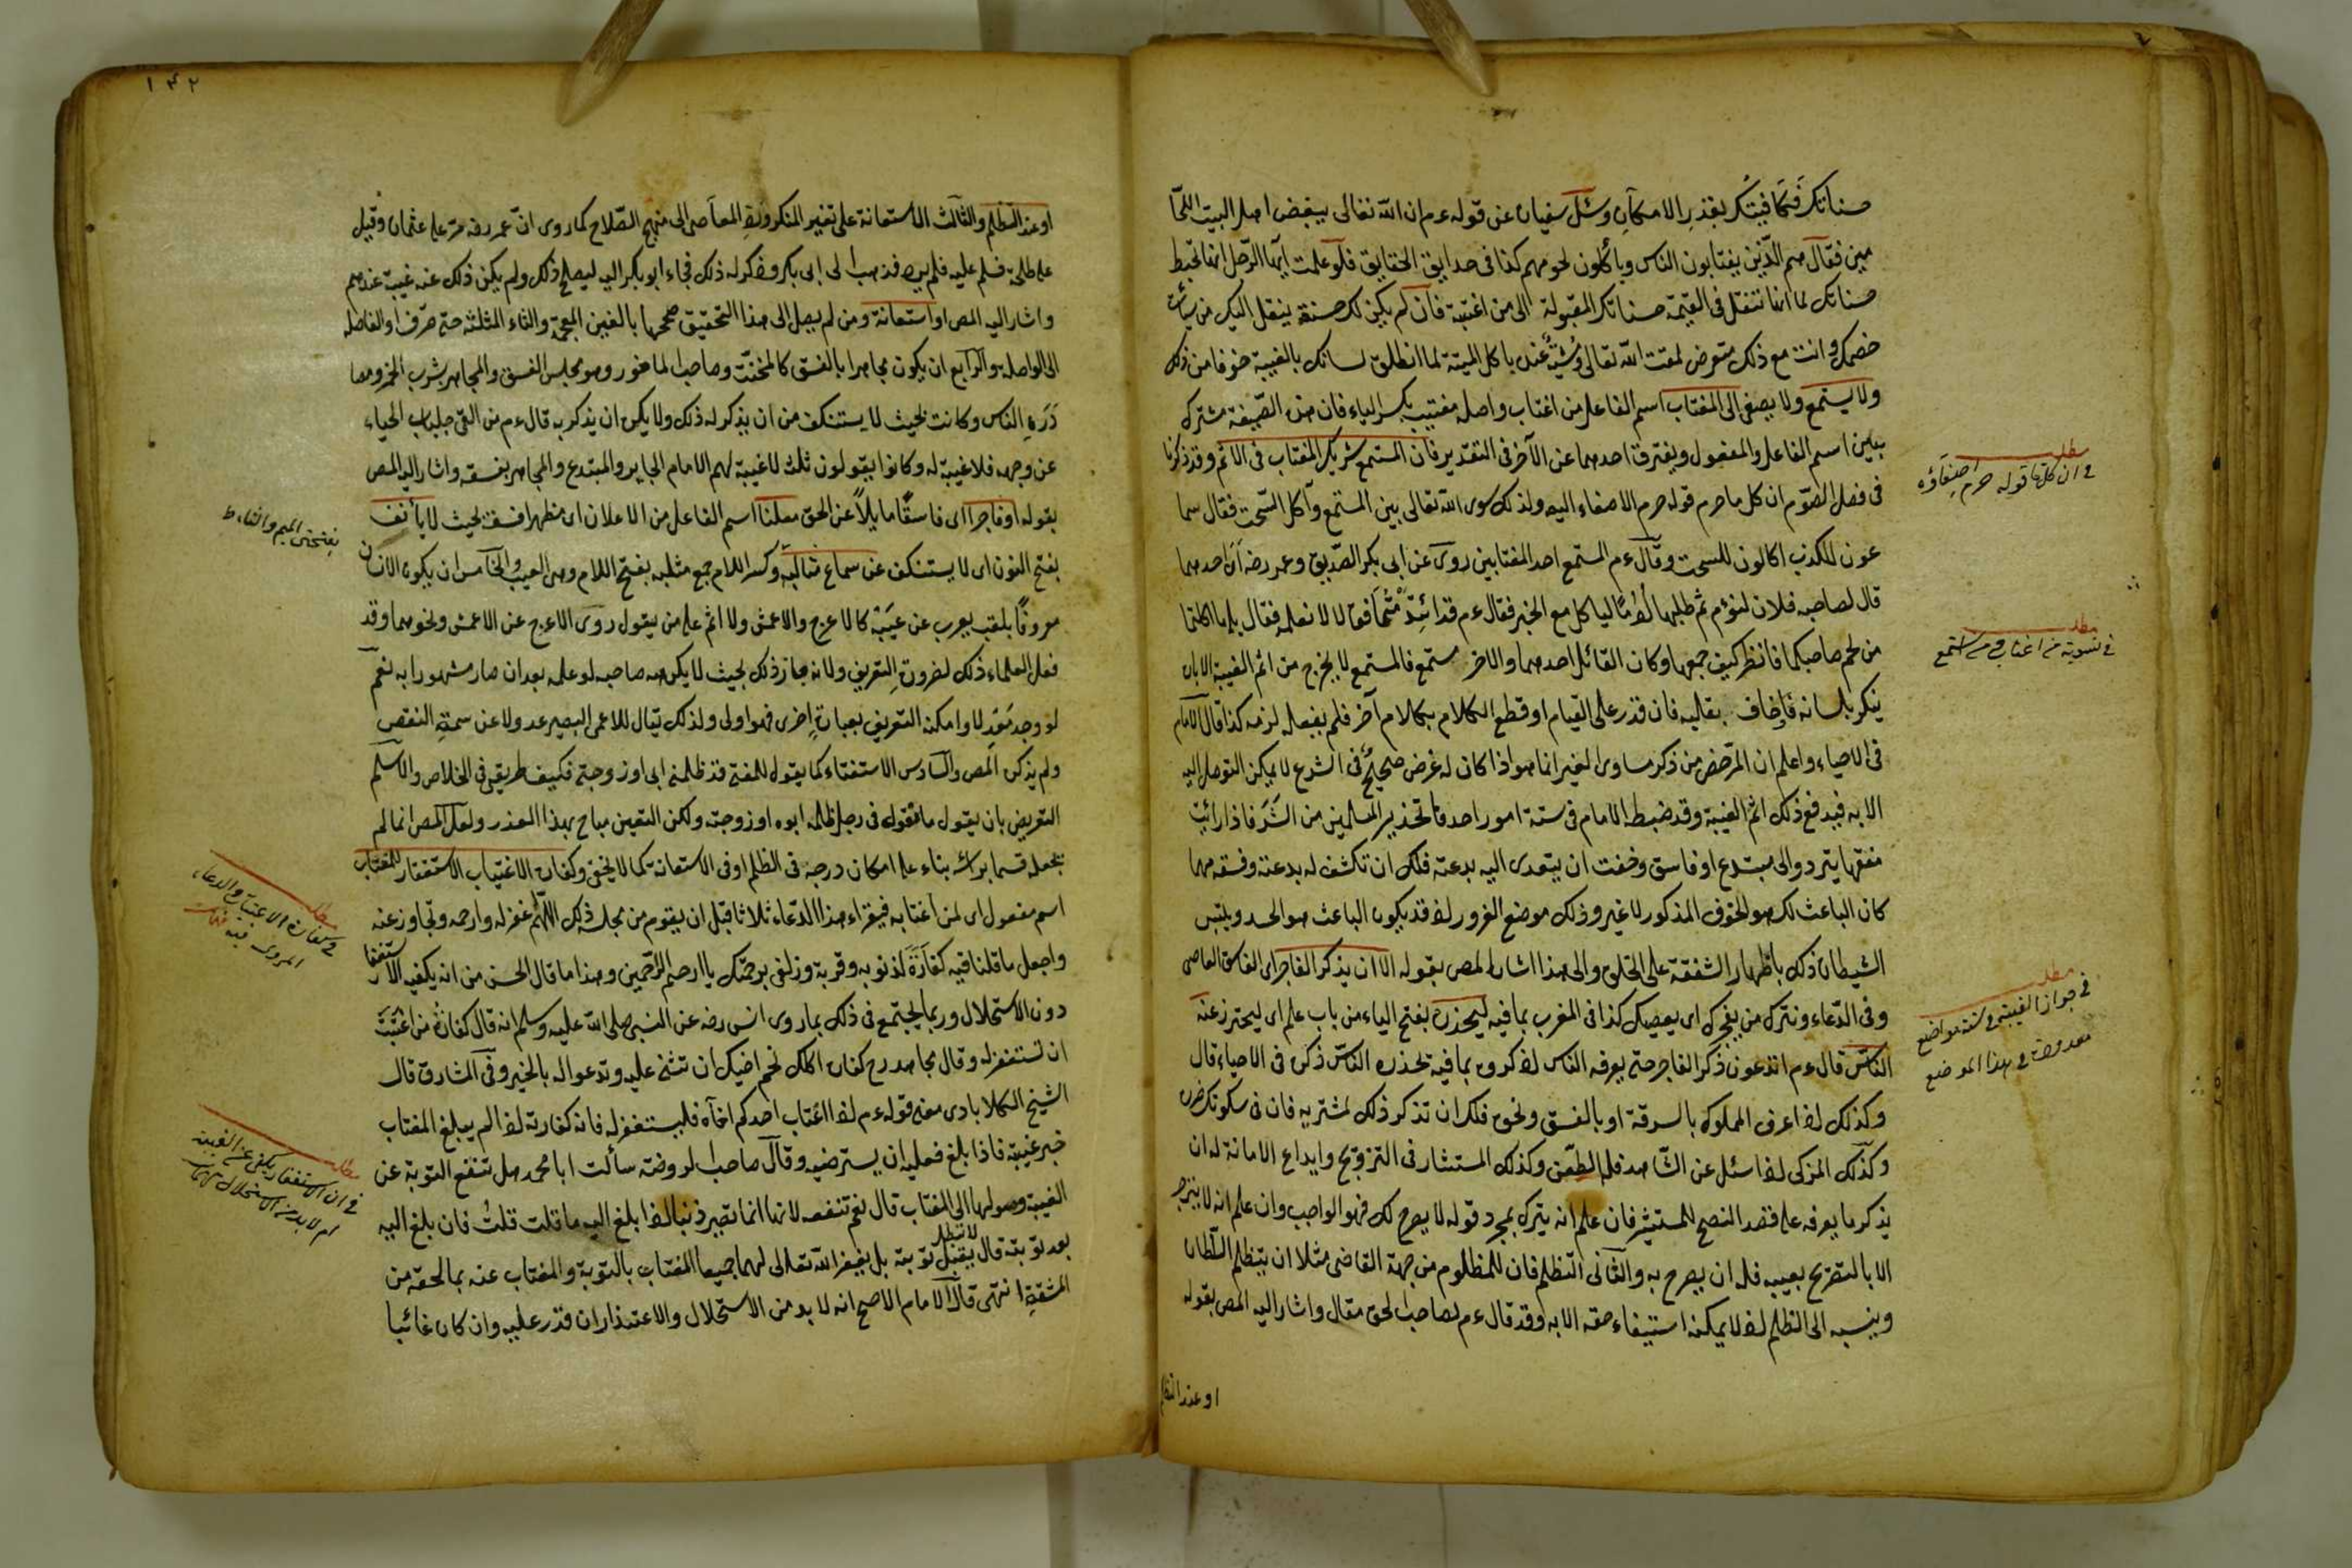 حسناتك فتكافيتك بقدر الامكان وسئل سفيان عن قوله عم ان الله تعالى يبغض اهل البيت اللحا
مين فقال هم الذين يغتابون الناس ويأكلون لحومهم كذا فى حدايق الحقايق فلو علمت ايها الرجل انها تحبط
حسناتك لما انها تنتقل فى القيمة حسناتك المقبولة الى من اغتبته فان لم يكن لك حسنة ينقل اليك من سيأت
خصمك وانت مع ذلك متعرض لمقت الله تعالى ومشبه عنده باكل الميتة لما انطلق لسانك بالغيبة خوفا من ذلك
ولا يستمع ولا يصغى الى المغتاب اسم الفاعل من اغتاب واصله مغتيب بكسر الياء فان هذه الصيغة مشترك
بين اسم الفاعل والمفعول ويفترق احدهما عن الآخر فى التقدير فان المستمع شريك المغتاب فى الاثم وقد ذكرنا
فى فصل الصوم ان كل ما حرم قوله حرم الاصغاء اليه ولذلك سوى الله تعالى بين المستمع وآكل السحت فقال سما
عون للكذب اكالون للسحت وقال عم المستمع احد المغتابين روى عن ابى بكر الصديق وعمر رضه ان احدهما
قال لصاحبه فلان لنؤم ثم طلبها ادُمًا ليأكل مع الخبز فقال عم قد ائتدمتما فقالا لا نعلمه فقال بلى ما اكلتما
من لحم صاحبكما فانظر كيف جمعهما وكان القائل احدهما والاخر مستمع فالمستمع لا يخرج من اثم الغيبة الا بان
ينكر بلسانه فان خاف بقلبه فان قدر على القيام او قطع الكلام بكلام آخر فلم يفعله لزمه كذا قال الامام
فى الاحياء واعلم ان المرخص من ذكر مساوى الغير انما هو اذا كان له غرض صحيح فى الشرع لا يمكن التوصل اليه
الا به فيدفع ذلك اثم الغيبة وقد ضبط الامام فى ستة امور احدها تحذير المسلمين من الشر فاذا رأيت
متفقها يتردد الى مبتدع او فاسق وخفت ان يتعدى اليه بدعته فلك ان تكشف له بدعته وفسقه مهما
كان الباعث لك هو الخوف المذكور لا غير وذلك موضع الغرور اذ قد يكون الباعث هو الحسد ويلبس
الشيطان ذلك باظهار الشفقة على الخلق والى هذا اشار المص بقوله الا ان يذكر الفاجر اى الفاسق العاصى
وفى الدعاء ونترك من يفجرك اى يعصيك كذا فى المغرب بما فيه ليحذره بفتح الياء من باب علم اى ليحترز عنه
الناس قال عم اتدعون ذكر الفاجر حتى يعرفه الناس اذكروه بما فيه تحذره الناس ذكره فى الاحياء قال
وكذلك اذا عرف المملوك بالسرقة او بالفسق ونحوه فلك ان تذكر ذلك لمشتريه فان فى سكوتك ضرره
وكذلك المزكى اذا سئل عن الشاهد فله الطعن وكذلك المستشار فى التزويج وايداع الامانة له ان
يذكر ما يعرفه على قصد النصح للمستشير فان علم انه يترك بمجرد قوله لا يصلح لك فهو الواجب وان علم انه لا ينزجر
الا بالتصريح بعيبه فله ان يصرح به والثانى التظلم فان للمظلوم من جهة القاضى مثلا ان يتظلم السلطان
وينسبه الى الظلم اذ لا يمكنه استيفاء حقه الا به وقد قال عم لصاحب الحق مقال واشار اليه المص بقوله
او عند التظلم
مطلب
فى ان كل ما قوله حرم حرم اصغاؤه
مطلب
فى تسوية من اغتاب ومن استمع
مطلب
فى جواز الغيبة فى ستة مواضع
معدودة فى هذا الموضع
١٤٢
او عند التظلم والثالث الاستعانة على تغيير المنكر ورد المعاصى الى منهج الصلاح كما روى ان عمر رضه مر على عثمان وقيل
على طلحة فسلم عليه فلم يرد فذهب الى ابى بكر وذكر له ذلك فجاء ابو بكر اليه ليصلح ذلك ولم يكن ذلك عنه غيبة عندهم
واشار اليه المص او استعانة ومن لم يصل الى هذا التحقيق صححها بالغين المعجمة والثاء المثلثة حتى صرف او الفاصله
الى الواصله والرابع ان يكون مجاهرا بالفسق كالمخنث وصاحب الماخور وهو مجلس الفسق والمجاهر بشرب الخمر ومصا
درة الناس وكانت بحيث لا يستنكف من ان يذكر له ذلك ولا يكره ان يذكر به قال عم من القى جلباب الحياء
عن وجهه فلا غيبة له وكانوا يقولون ثلث لا غيبة لهم الامام الجاير والمبتدع والمجاهر بفسقه واشار اليه المص
بقوله او فاجرا اى فاسقا مايلا عن الحق معلنا اسم الفاعل من الاعلان اى مظهرا فسقه بحيث لا يأنف
بفتح النون اى لا يستنكف عن سماع مثالبه وكسر اللام جمع مثلبه بفتح اللام وهى العيب والخامس ان يكون الانسان
معروفا بلقب يعرب عن عيبه كالاعرج والاعمش ولا اثم على من يقول روى الاعرج عن الاعمش ونحوهما وقد
فعل العلماء ذلك لضرورة التعريف ولانه جاز ذلك بحيث لا يكرهه صاحبه لو علمه بعد ان صار مشهورا به نعم
لو وجد معدلا وامكنه التعريف بعبارة اخرى فهو اولى ولذلك يقال للاعمى البصير عدولا عن سمة النقص
ولم يذكره المص والسادس الاستفتاء كما يقول للمفتى قد ظلمنى ابى او زوجتى فكيف طريقى فى الخلاص والاسلم
التعريض بان يقول ما قولك فى رجل ظلمه ابوه او زوجته ولكن التعين مباح بهذا العذر ولعل المص انما لم
يجعله قسما برأسه بناء على امكان درجه فى الظلم او فى الاستعانة كما لا يخفى وكفارة الاغتياب الاستغفار للمغتاب
اسم مفعول اى لمن اغتابه فيقراء هذا الدعاء ثلاثا قبل ان يقوم من مجلسه ذلك اللهم اغفر له وارحمه وتجاوز عنه
واجعل ما قلنا فيه كفارة لذنوبه وقربة وزلفى برحمتك يا ارحم الراحمين وهذا ما قال الحسن من انه يكفيه الاستغفار
دون الاستحلال وربما يحتج فى ذلك بما روى انس رضه عن النبى صلى الله عليه وسلم انه قال كفارة من اغتبت
ان تستغفر له وقال مجاهد رح كفارة اكلك لحم اخيك ان تثنى عليه وتدعو له بالخير وفى المشارق قال
الشيخ الكلابادى معنى قوله عم اذا اغتاب احدكم اخاه فليستغفر له فانه كفارته اذا لم يبلغ المغتاب
خبر غيبته فاذا بلغ فعليه ان يسترضيه وقال صاحب الروضة سألت ابا محمد هل تنفع التوبة عن
الغيبة وصولها الى المغتاب قال نعم تنفعه لانها انما تصير ذنبا اذا بلغ اليه ما قلت قلت فان بلغ اليه
بعد توبته قال لا تبطل توبته بل يغفر الله تعالى لهما جميعا المغتاب بالتوبة والمغتاب عنه بما لحقه من
المشقة انتهى قال الامام الاصح انه لا بد من الاستحلال والاعتذار ان قدر عليه وان كان غائبا
بفتحتى الميم والثاء ط
مطلب
فى كفارة الاغتياب والدعاء
المروى فيه
مطلب
فى ان الاستغفار يكفى عن الغيبة
ام لا بد من الاستحلال